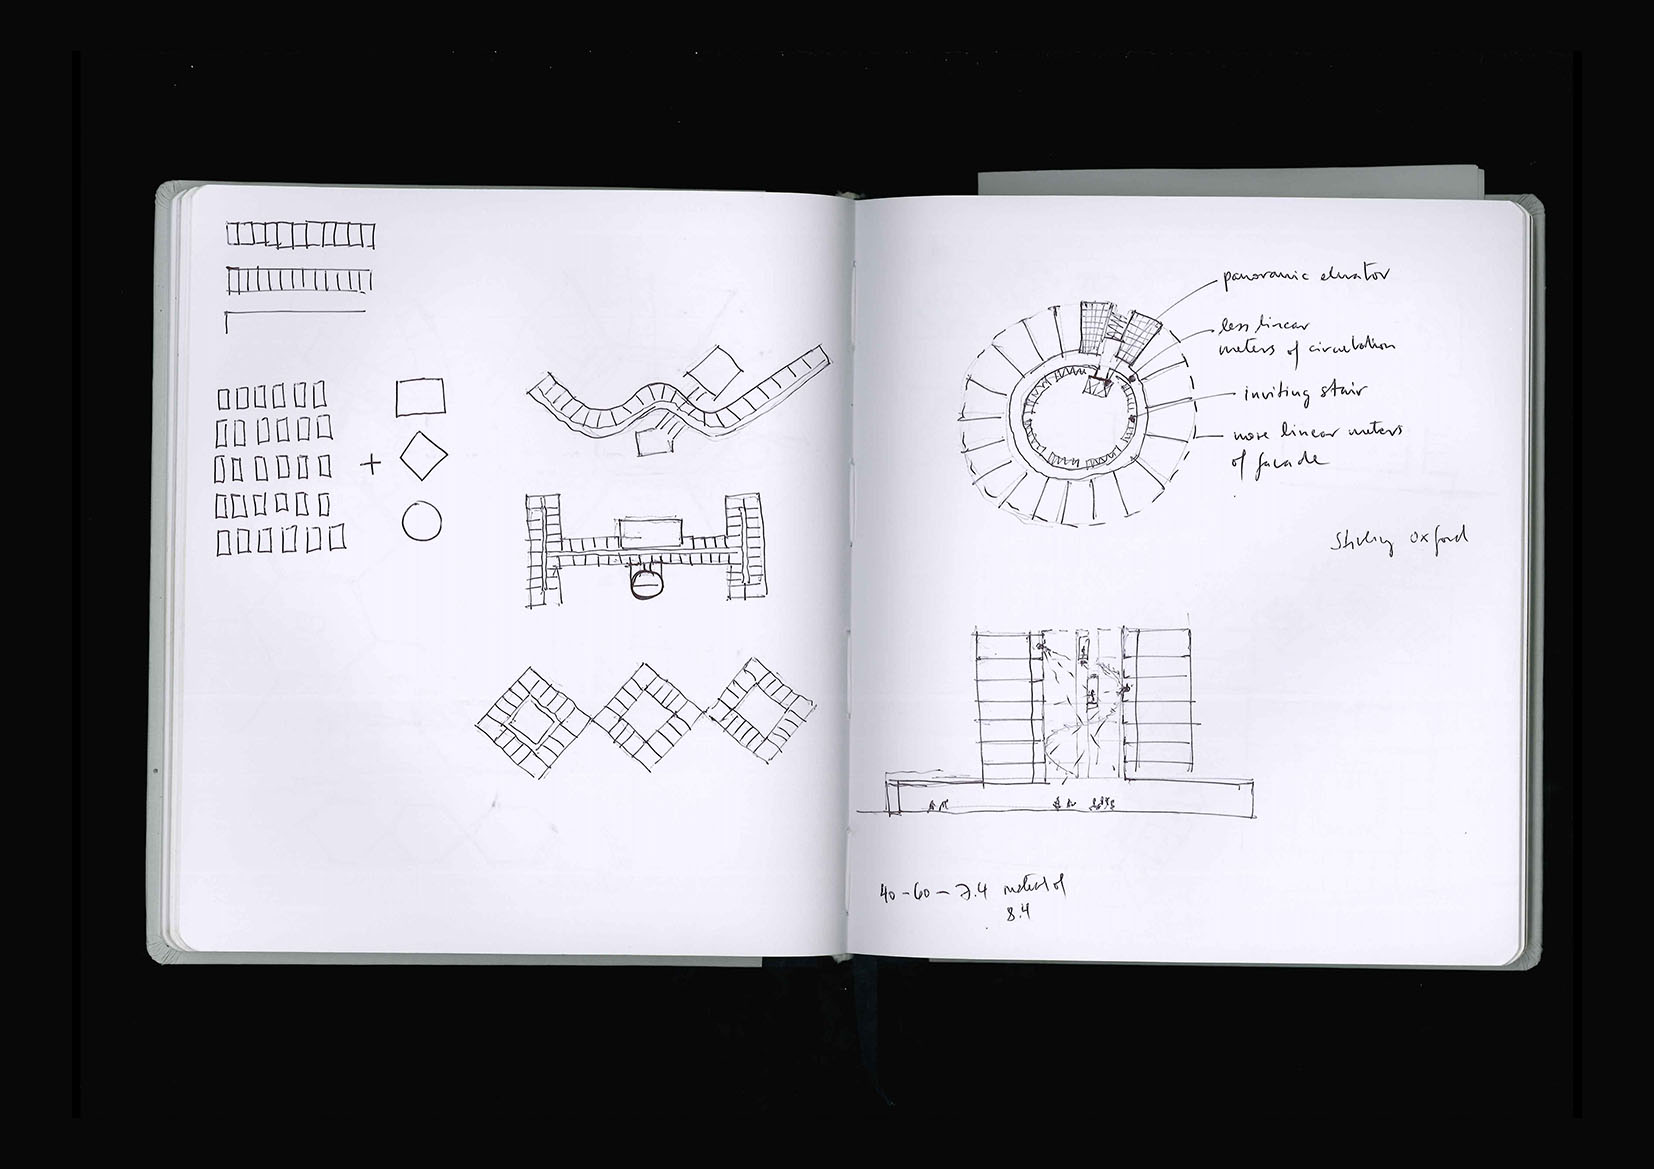 panoramic elevator
less linear
meters of circulation
inviting stair
more linear meters
of facade
Oxford
40-60-7.4
8.4